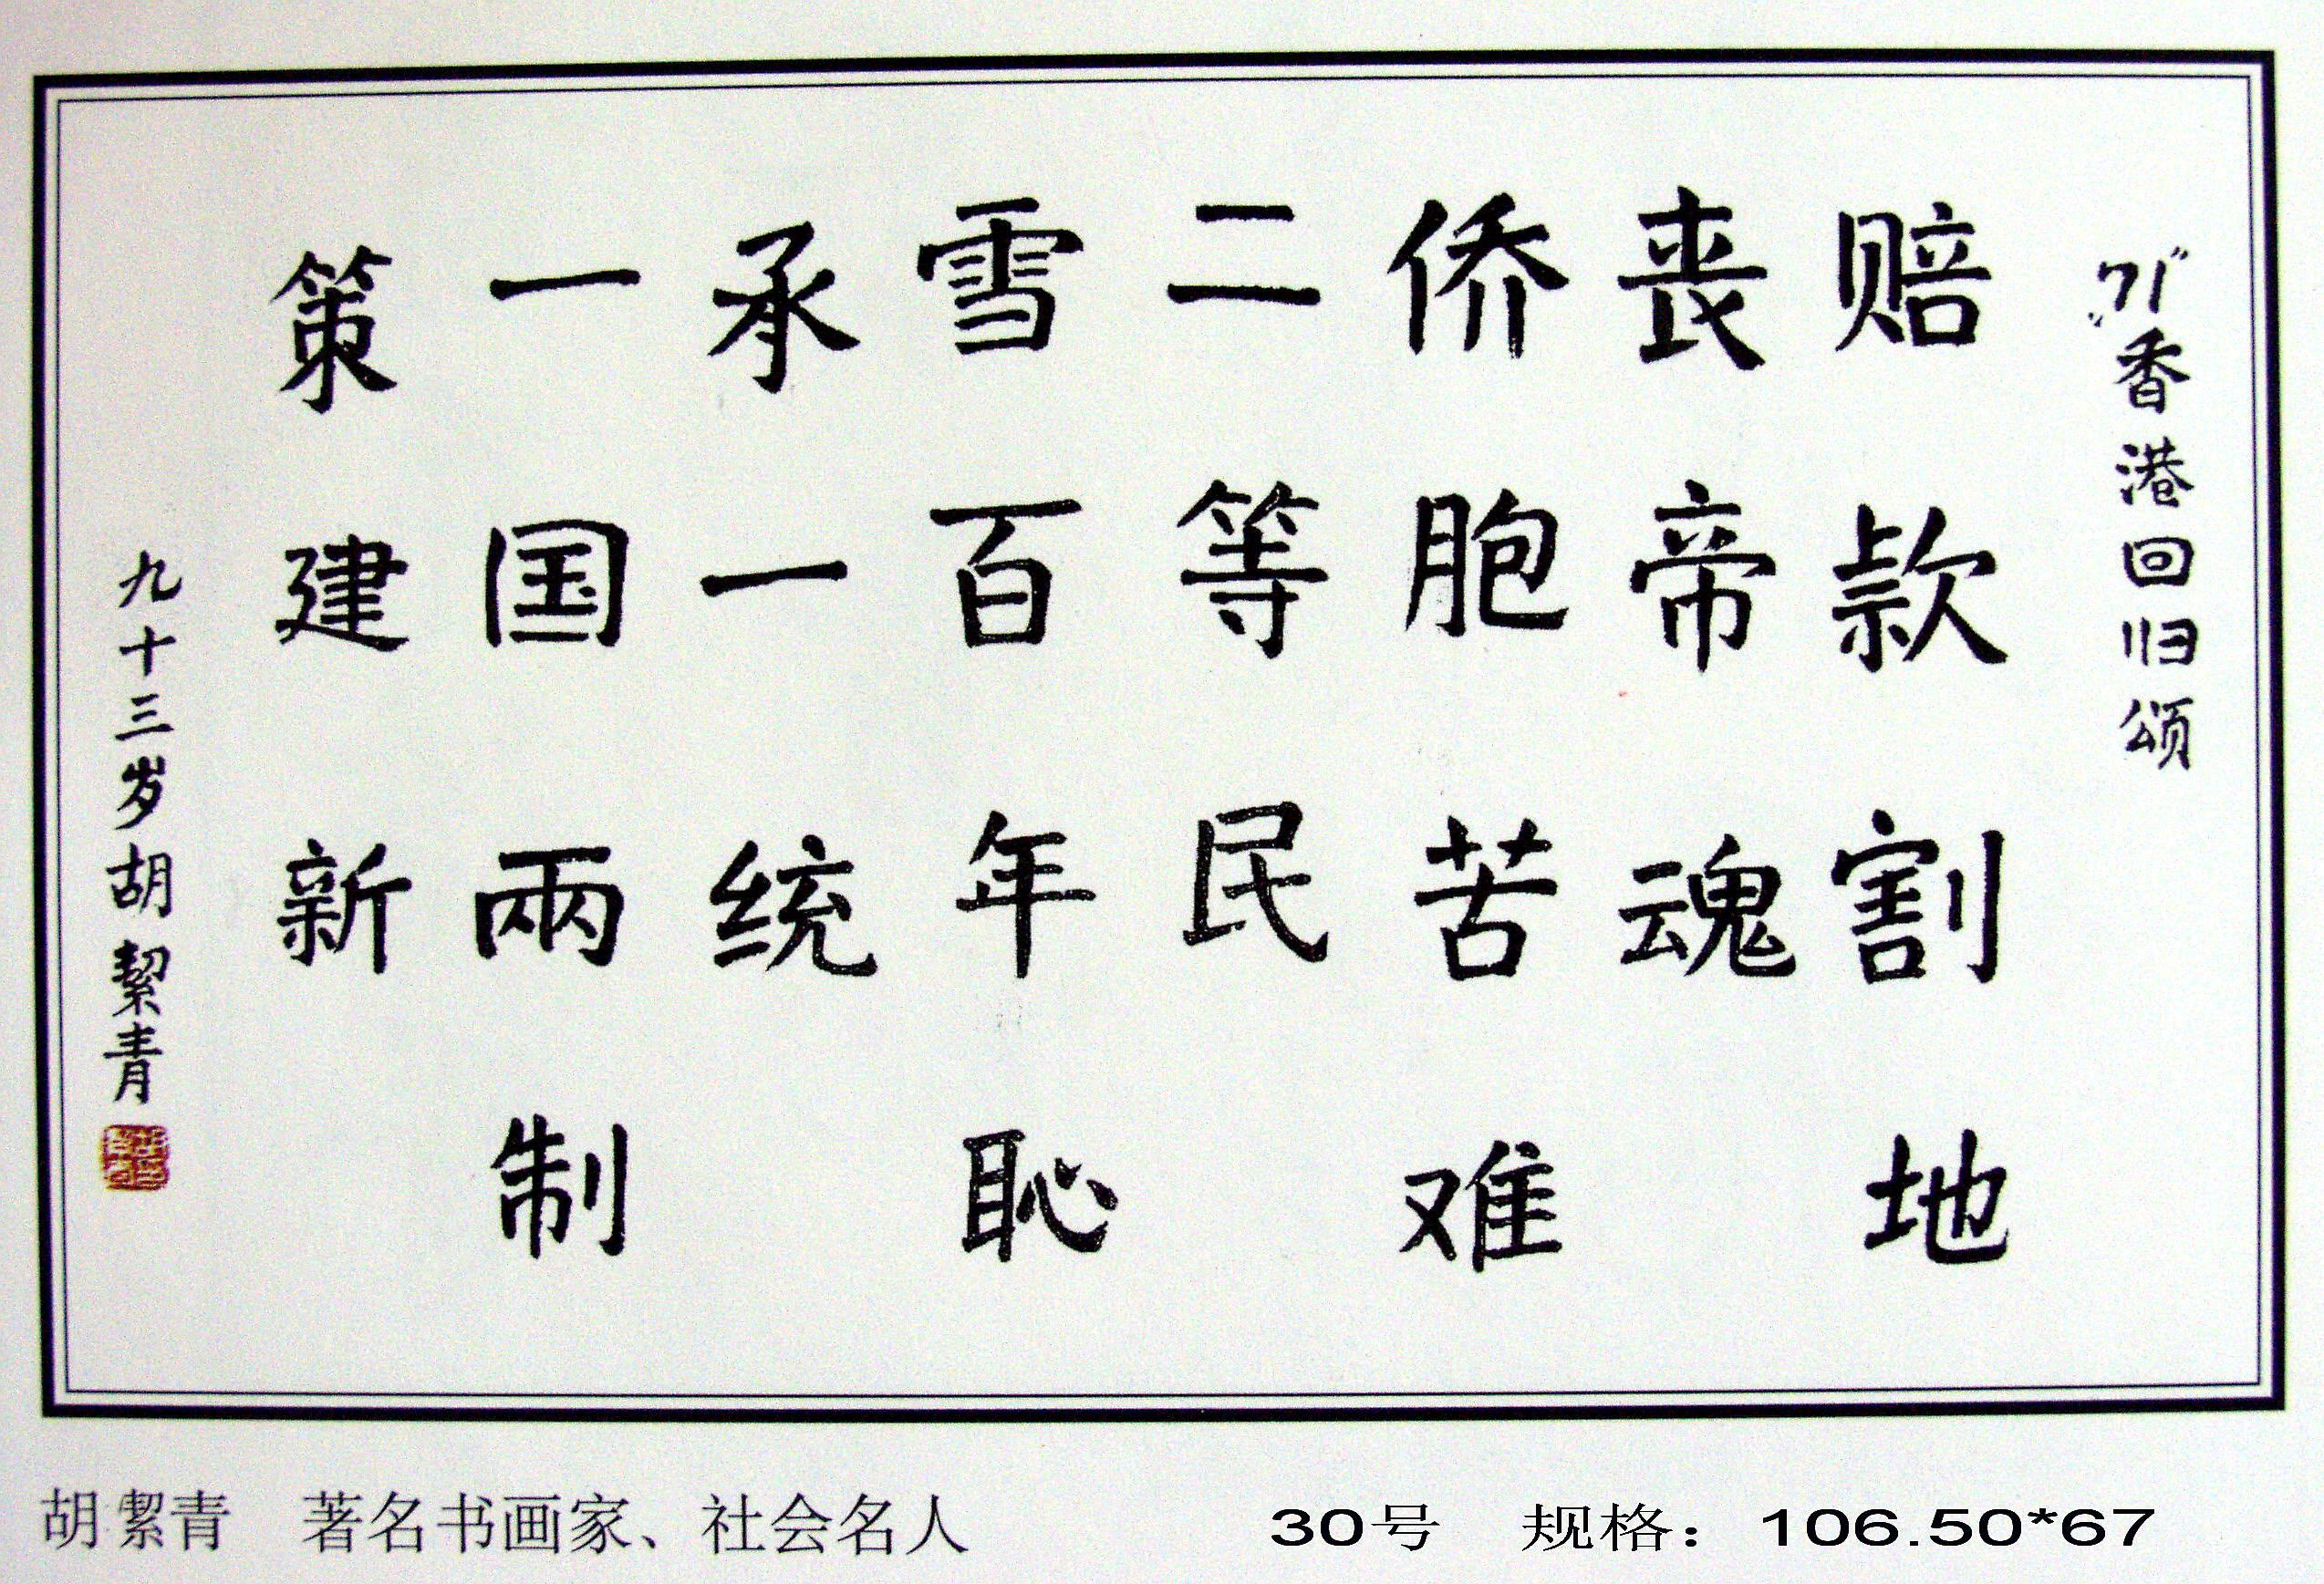 “71”香港回归颂
赔款割地
丧帝魂
侨胞苦难
二等民
雪百年恥
承一统
一国兩制
策建新
九十三岁胡絜青
胡絜青 著名书画家、社会名人 30号 规格：106.50*67